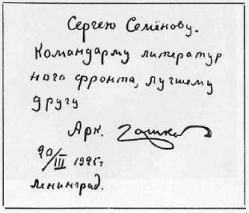 Сергею Семёнову.
Командарму литератур
ного фронта, лучшему
другу
Арк.
20/III 1925г.
Ленинград.